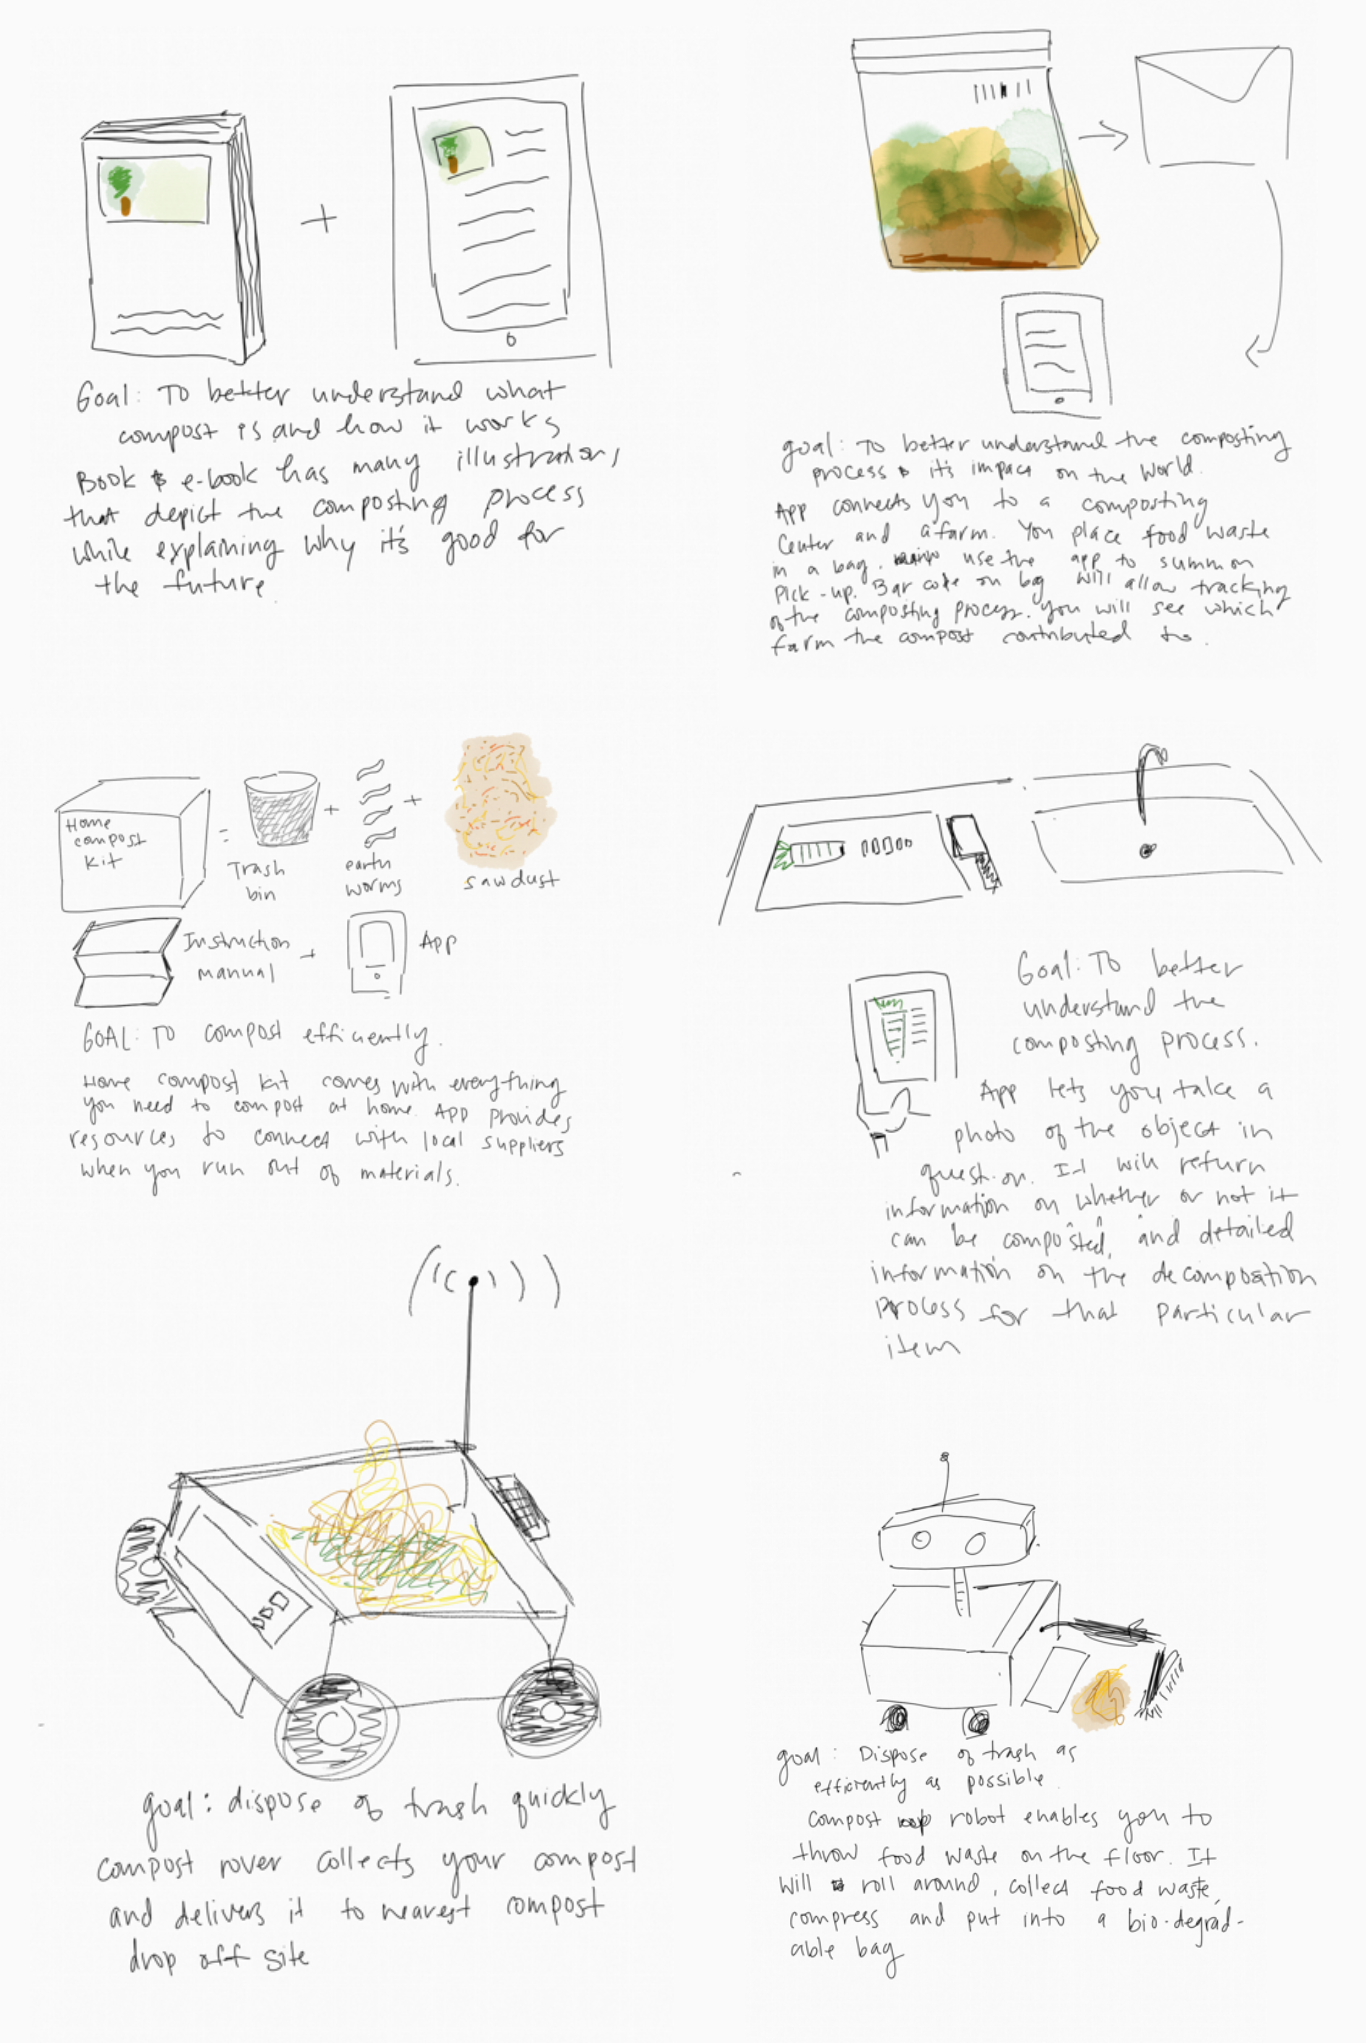 Goal: To better understand what
compost is and how it works
Book & e-book has many illustrations
that depict the composting process
while explaining why it's good for
the future.
goal: To better understand the composting
process & it's impact on the world.
App connects you to a composting
center and a farm. You place food waste
in a bag. use the app to summon
pick-up. Bar code on bag will allow tracking
of the composting process. You will see which
farm the compost contributed to.
Home
compost
kit
=
Trash
bin
+
earth
worms
+
sawdust
Instruction
manual
+
App
GOAL: TO compost efficiently.
Home compost kit comes with everything
you need to compost at home. App provides
resources to connect with local suppliers
when you run out of materials.
Goal: To better
understand the
composting process.
App lets you take a
photo of the object in
question. It will return
information on whether or not it
can be composted, and detailed
information on the decomposition
process for that particular
item
goal: dispose of trash quickly
compost rover collects your compost
and delivers it to nearest compost
drop off site
goal: Dispose of trash as
efficiently as possible.
compost robot enables you to
throw food waste on the floor. It
will roll around, collect food waste,
compress and put into a bio-degrad-
able bag